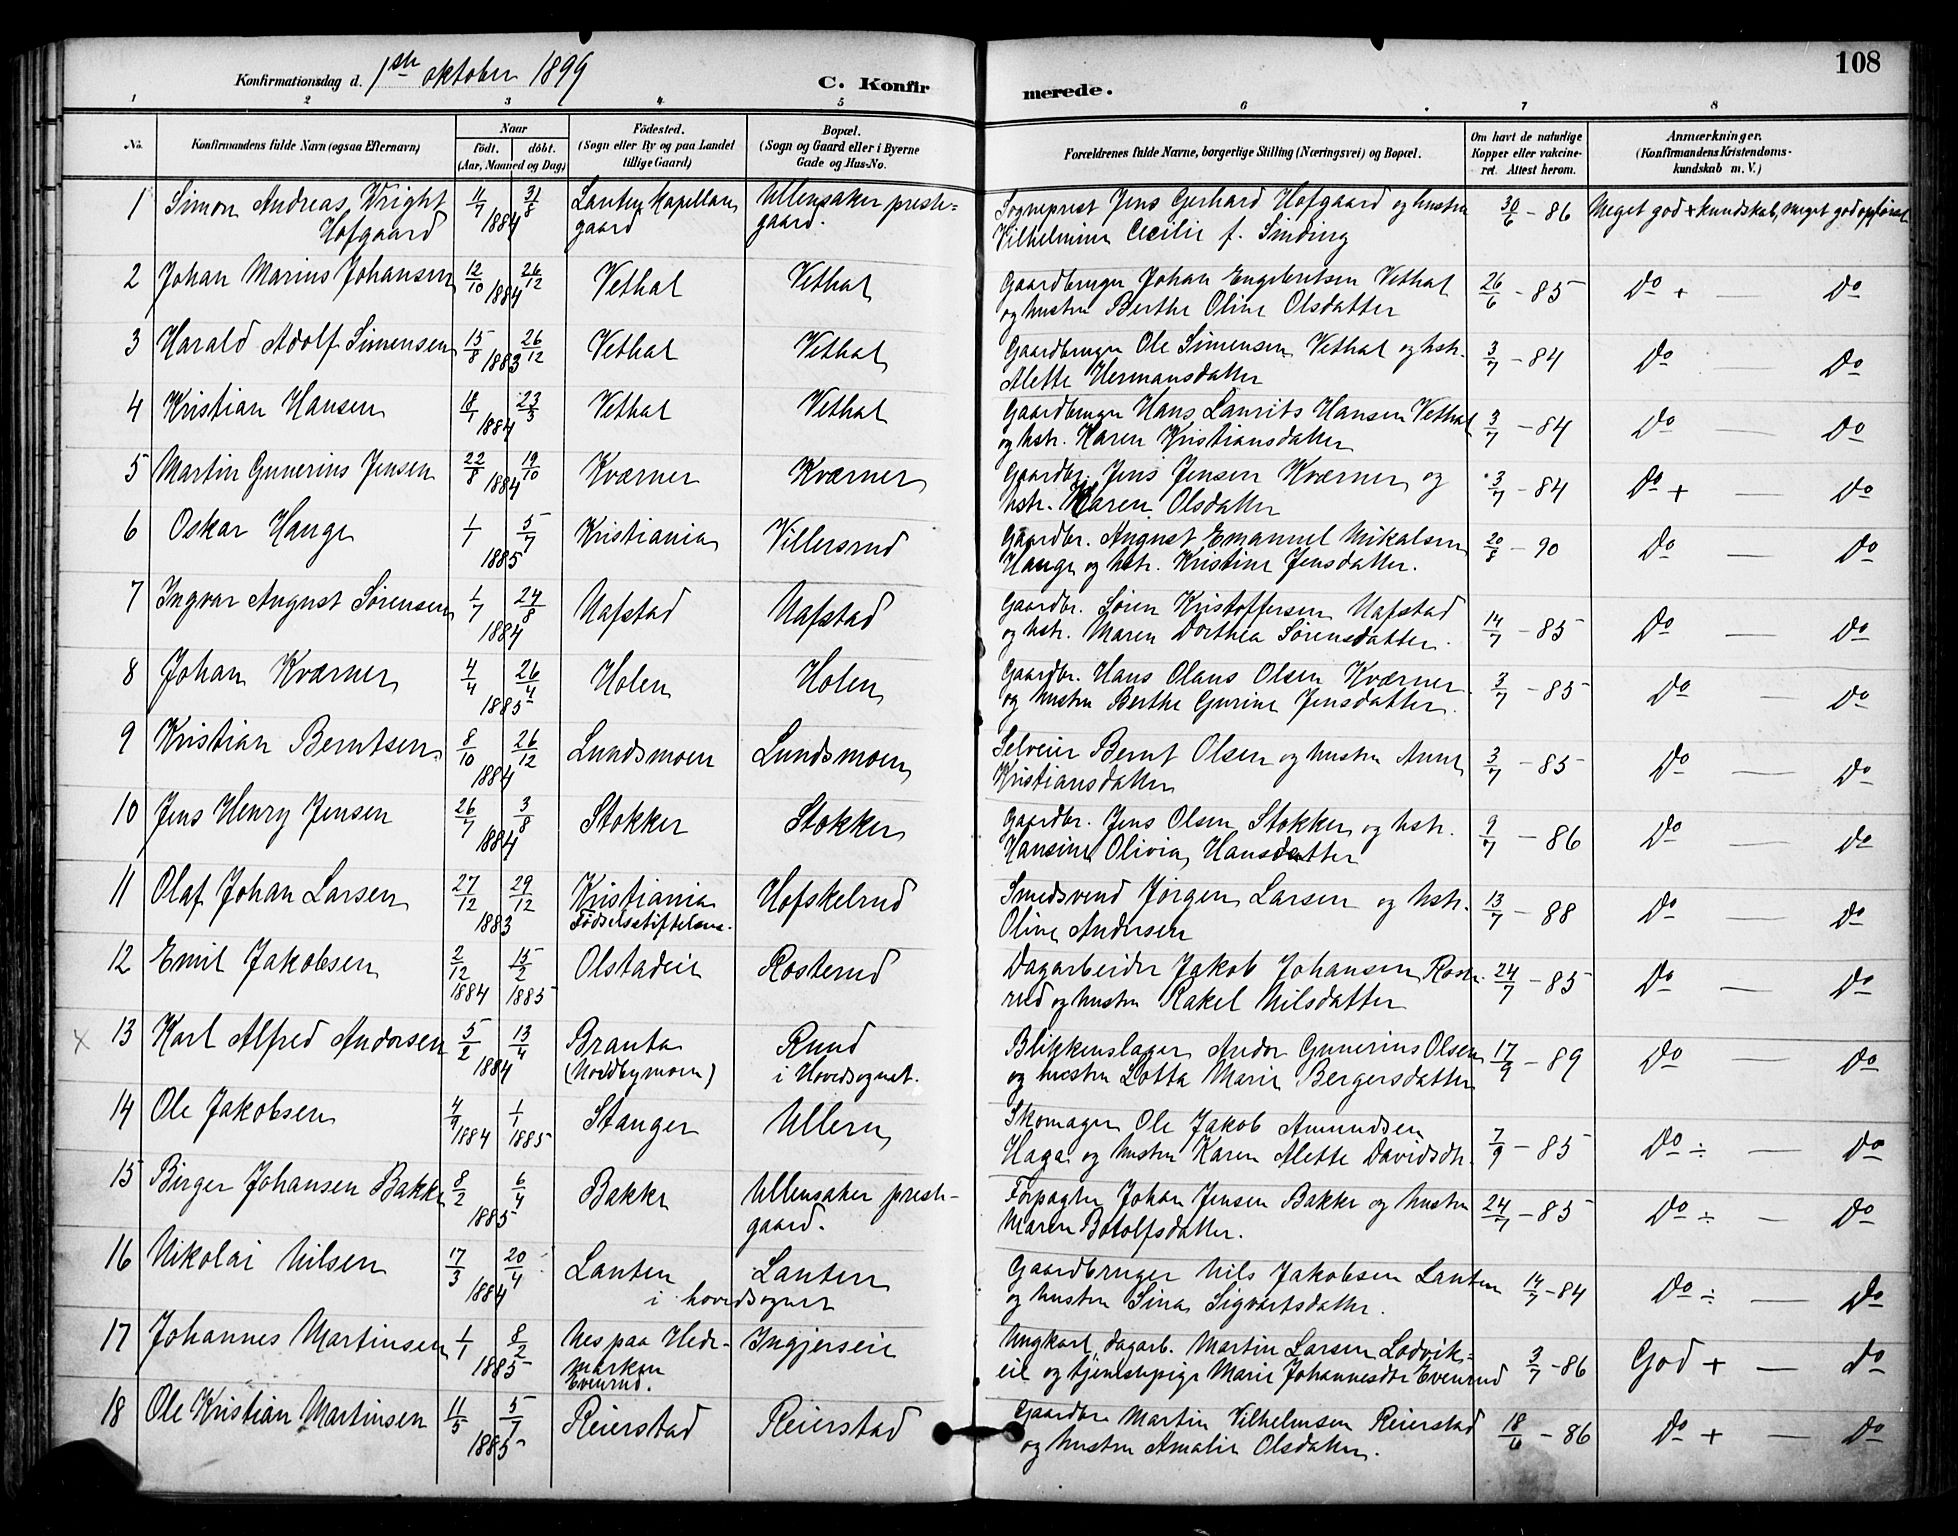 108
Konfirmationsdag d. 1ste oktober 1899
C. Konfirmerede.
1 2 3 4 5 6 7 8
No.
Konfirmandens fulde Navn (ogsaa Efternavn)
Naar
födt. döbt.
(Aar, Maaned og Dag)
Födested.
(Sogn eller By og paa Landet
tillige Gaard)
Bopæl.
(Sogn og Gaard eller i Byerne
Gade og Hus-No.
Forældrenes fulde Navne, borgerlige Stilling (Næringsvei) og Bopæl.
Om havt de naturlige
Kopper eller vakcine-
ret. Attest herom.
Anmærkninger.
(Konfirmandens Kristendoms-
kundskab m. V.)
1 Simon Andreas Wright 11/7 31/8 Lauten Kapellan Ullensaker preste= Sogneprest Jens Gerhard Hofgaard og hustru 30/6 - 86 Meget god + kundskab, meget god opførsel
Hofgaard 1884 gaard gaard. Vilhelmine Cecilie f. Sinding
2 Johan Marius Johansen 12/10 26/12 Vethal Vethal Gaardbruger Johan Engebretsen Vethal 26/6 - 85 Do + — Do
1884 og hustru Berthe Oline Olsdatter
3 Harald Adolf Simensen 15/8 26/12 Vethal Vethal Gaardbruger Ole Simensen Vethal og hstr. 3/7 - 84 Do — Do
1883 Alette Hermansdatter
4 Kristian Hansen 18/1 23/3 Vethal Vethal Gaardbruger Hans Laurits Hansen Vethal 3/7 - 84 Do — Do
1884 og hstr. Karen Kristiansdatter
5 Martin Gunerius Jensen 22/8 19/10 Kværner Kværner Gaardbr. Jens Jensen Kværner og 3/7 - 84 Do + — Do
1884 hstr. Karen Olsdatter
6 Oskar Hauge 1/1 5/7 Kristiania Villersrud Gaardbr. August Emanuel Mikalsen 20/8 - 90 Do — Do
1885 Hauge og hstr. Kristine Jensdatter.
7 Ingvar August Sørensen 1/7 24/8 Nafstad Nafstad Gaardbr. Søren Kristoffersen Nafstad 14/7 - 85 Do — Do
1884 og hstr. Maren Dorthea Sørensdatter.
8 Johan Kværner 4/4 26/4 Holen Holen Gaardbr. Hans Olaus Olsen Kværner 3/7 - 85 Do — Do
1885 og hustru Berthe Gurine Jensdatter.
9 Kristian Berntsen 8/10 26/12 Lundsmoen Lundsmoen Selveier Bernt Olsen og hustru Anne 3/7 - 85 Do — Do
1884 Kristiansdatter
10 Jens Henry Jensen 26/7 3/8 Stokker Stokker Gaardbr. Jens Olsen Stokker og hstr. 9/7 - 86 Do — Do
1884 Hansine Olivia Hansdatter
11 Olaf Johan Larsen 27/12 29/12 Kristiania Hofskelrud Smedsvend Jørgen Larsen og hstr. 13/7 - 88 Do — Do
1883 Födselsstiftelsen. Oline Andersen
12 Emil Jakobsen 2/12 15/2 Olstadeie Rosterud Dagarbeider Jakob Johansen Roste- 24/7 - 85 Do — Do
1884 1885 rud og hustru Rakel Nilsdatter
x 13 Karl Alfred Andorsen 5/2 13/4 Branta Rund Blikkenslager Andor Gunerius Olsen 17/9 - 89 Do — Do
1884 (Nordbymoen) i Hovedsognet. og hustru Lotta Marie Bergersdatter
14 Ole Jakobsen 4/9 1/1 Stanger Ullern Skomager Ole Jakob Amundsen 7/9 - 85 Do ÷ — Do
1884 1885 Haga og hustru Karen Alette Davidsdtr.
15 Birger Johansen Bakke 8/2 6/4 Bakke Ullensaker preste- Forpagter Johan Jensen Bakke og hustru 24/7 - 85 Do ÷ — Do
1885 gaard. Maren Botolfsdatter.
16 Nikolai Nilsen 17/3 20/4 Lauten Lauten Gaardbruger Nils Jakobsen Lauten 14/7 - 84 Do ÷ — Do
1884 i hovedsognet og hustru Sina Sigvartsdatter.
17 Johannes Martinsen 1/1 8/2 Nes paa Hede- Ingjerseie Ungkarl, dagarb. Martin Larsen Lodvik= 3/7 - 86 God + — Do
1885 marken eie og tjenestepige Marie Johannesdtr Evenrud
Evenrud.
18 Ole Kristian Martinsen 11/5 5/7 Reierstad Reierstad Gaardbr. Martin Vilhelmsen Reierstad 18/6 - 86 Do + — Do
1885 og hustru Amalie Olsdatter.